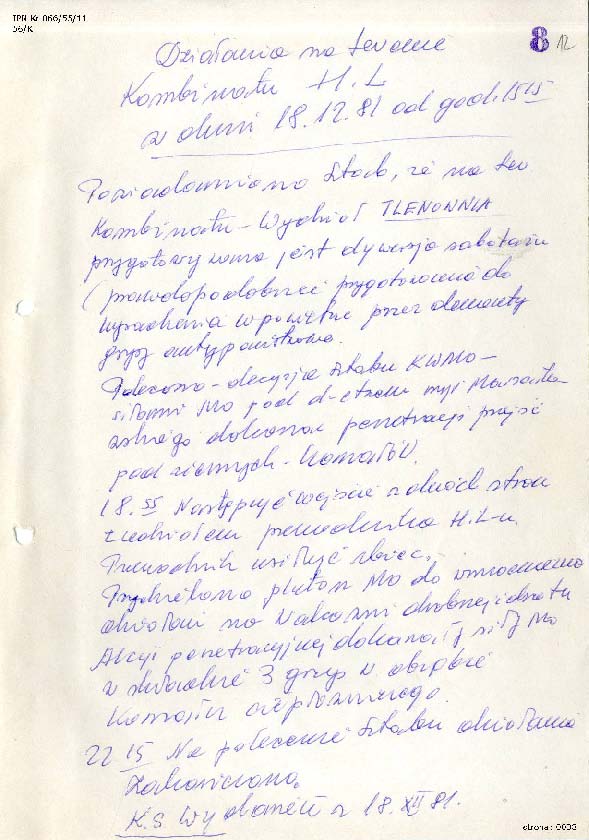 IPN Kr 066/55/11
56/K
8 12
Działania na terenie
Kombinatu H.L
w dniu 18.12.81 od godz. 15 15
Powiadomiono Sztab, że na ter
Kombinatu - Wydział TLENOWNIA
przygotowywana jest dywersja sabotażu
(prawdopodobnie przygotowana do
wysadzenia w powietrze przez elementy
grup antypaństwowe.
Polecono - decyzja Sztabu KWMO -
siłami MO pod d-ctwem mjr
dokonać penetracji przejść
pod ziemnych - kanałów.
18.55 Następuje wejście z dwóch stron
z udziałem przewodnika H.L-u.
Przewodnik usiłuje zbiec.
pluton MO do wzmocnienia
działań na Walcowni drobnej i drutu
Akcji penetracyjnej dokonały siły MO
w składzie 3 grup w obrębie
Kanału ciepłowniczego.
22 15 Na polecenie Sztabu działania
Zakończono.
K.S. z 18.XII 81.
strona: 0003